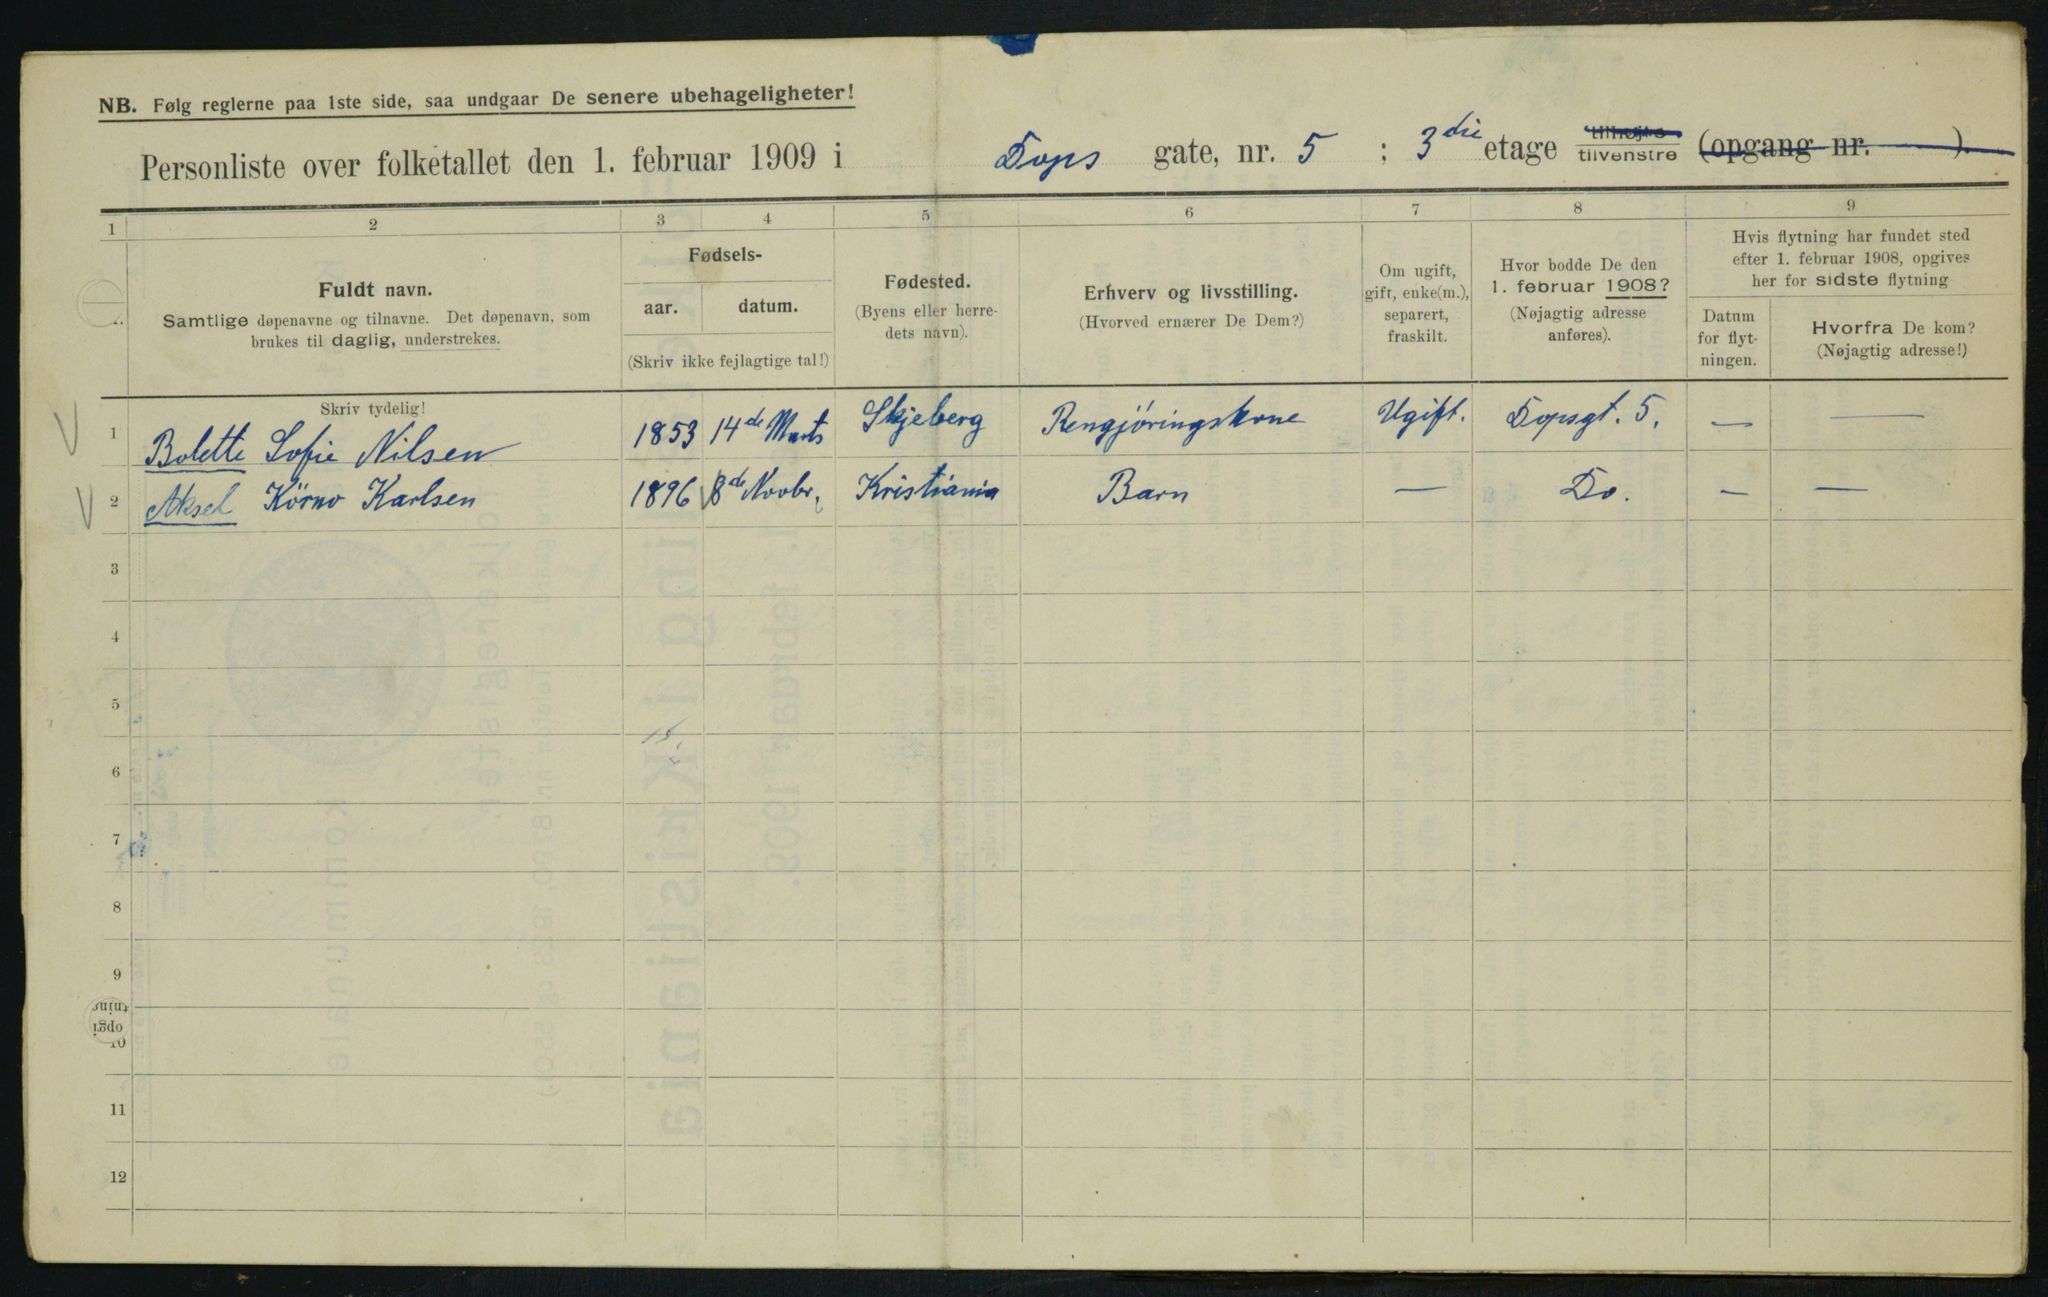 NB. Følg reglerne paa 1ste side, saa undgaar De senere ubehageligheter!
Personliste over folketallet den 1. februar 1909 i Dops gate, nr. 5 ; 3die etage tilhøjre tilvenstre (opgang nr. ).
1 2 3 4 5 6 7 8 9
Fuldt navn.
Samtlige døpenavne og tilnavne. Det døpenavn, som
brukes til daglig, understrekes.
Fødsels-
aar. datum.
(Skriv ikke fejlagtige tal!)
Fødested.
(Byens eller herre-
dets navn).
Erhverv og livsstilling.
(Hvorved ernærer De Dem?)
Om ugift,
gift, enke(m.),
separert,
fraskilt.
Hvor bodde De den
1. februar 1908?
(Nøjagtig adresse
anføres).
Hvis flytning har fundet sted
efter 1. februar 1908, opgives
her for sidste flytning
Datum
for flyt-
ningen.
Hvorfra De kom?
(Nøjagtig adresse!)
Skriv tydelig!
1 Bolette Sofie Nilsen 1853 14de Marts Skjeberg Rengjöringskone Ugift. Dopsgt. 5. — —
2 Aksel Körno Karlsen 1896 8de Novbr. Kristiania Barn — Do. — —
3
4
5
6
7
8
9
10
11
12